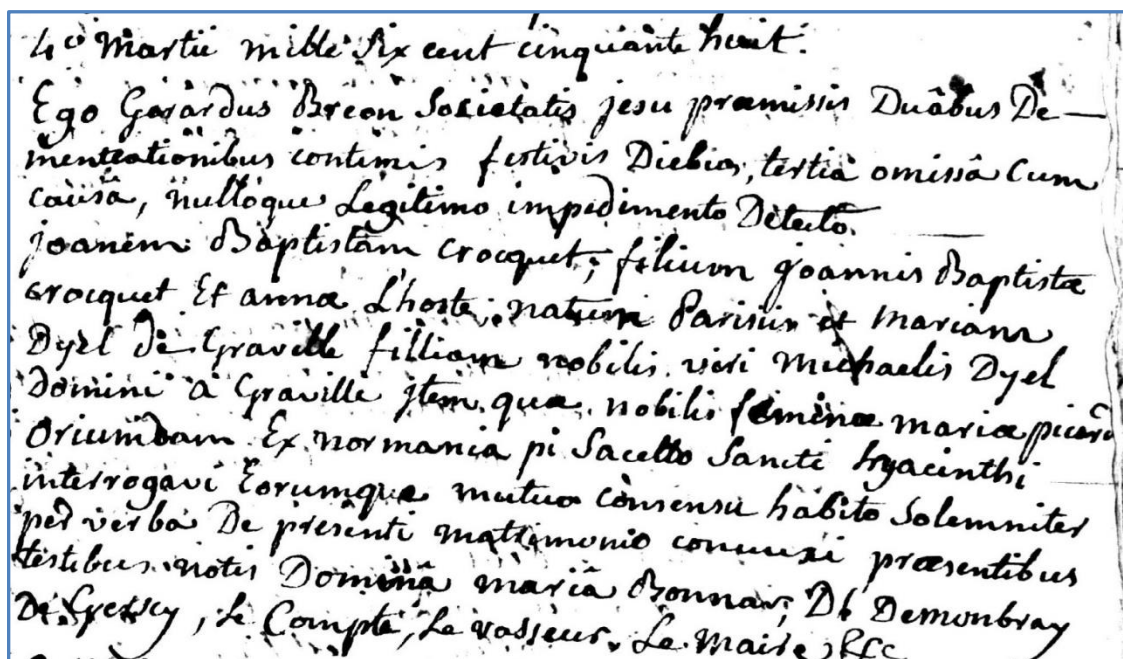 4o Martii mille six cent cinquante huit.
Ego Gerardus Breon Societatis jesu præmissis Duâbus De-
mentiationibus continuis festivis Diebus, tertiâ omissâ Cum
causâ, nulloque Légitimo impedimento Detecto.
joanem Baptistam Crocquet, filium joannis Baptistæ
crocquet Et annæ L'hoste, natum Parisiis et Mariam
Dyel de Graville filliam nobilis viri Michaelis Dyel
Domini à Graville jtem quæ nobilis feminæ mariæ picard
Oriumdam Ex normania pi Sacello Sancti hyacinthi
interrogavi Eorumque mutuo consensu habito Solemniter
per verba De presenti matrimonio conjunxi præsentibus
testibus notis Dominâ mariâ Bonnar, De Demonbray
De Gersey, Le Compte, Le vasseur, Le Maire, &cc